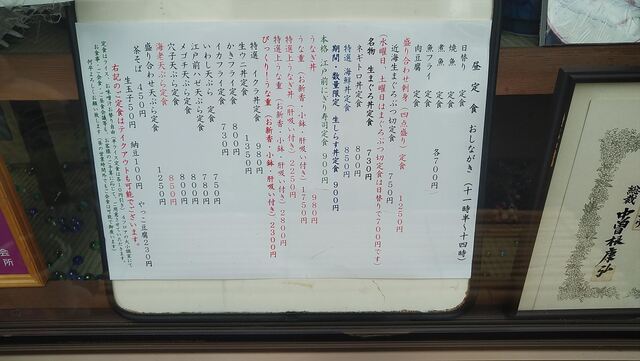 昼定食 おしながき (十一時半～十四時)
日替り 定食
焼魚 定食
煮魚 定食
魚フライ 定食
肉豆腐 定食
各700円
盛り合わせ刺身(四点盛り)定食 1250円
近海生まぐろぶつ切定食 750円
(水曜日、土曜日はまぐろぶつ切定食は日替りで700円です)
名物 生まぐろ丼定食 730円
ネギトロ丼定食 800円
特選 海鮮丼定食 850円
期間・数量限定 生しらす丼定食 900円
本格 江戸前にぎり寿司定食 900円
うなぎ丼 980円
うな重(お新香・小鉢・肝吸い付き)1750円
特選上うなぎ丼(肝吸い付き)2250円
特選上うな重(お新香・小鉢・肝吸い付き)2800円
びっくりうな重(お新香・小鉢・肝吸い付き)2300円
特選 イクラ丼定食 980円
生ウニ丼定食 1350円
かきフライ定食 800円
イカフライ定食 730円
いわし天ぷら定食 750円
江戸前ハゼ天ぷら定食 700円
メゴチ天ぷら定食 800円
穴子天ぷら定食 800円
海老天ぷら定食 850円
盛り合わせ天ぷら定食 1250円
茶そば 450円 納豆100円 やっこ豆腐230円
生玉子50円
右記のご定食はテイクアウトも可能でございます。
総裁 中曽根康弘
会所